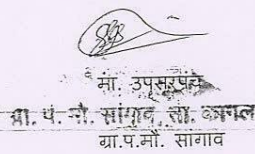 मा. उपसरपंच
ग्रा. पं. मौ. सांगाव, ता. कागल
ग्रा.प.मौ. सांगाव